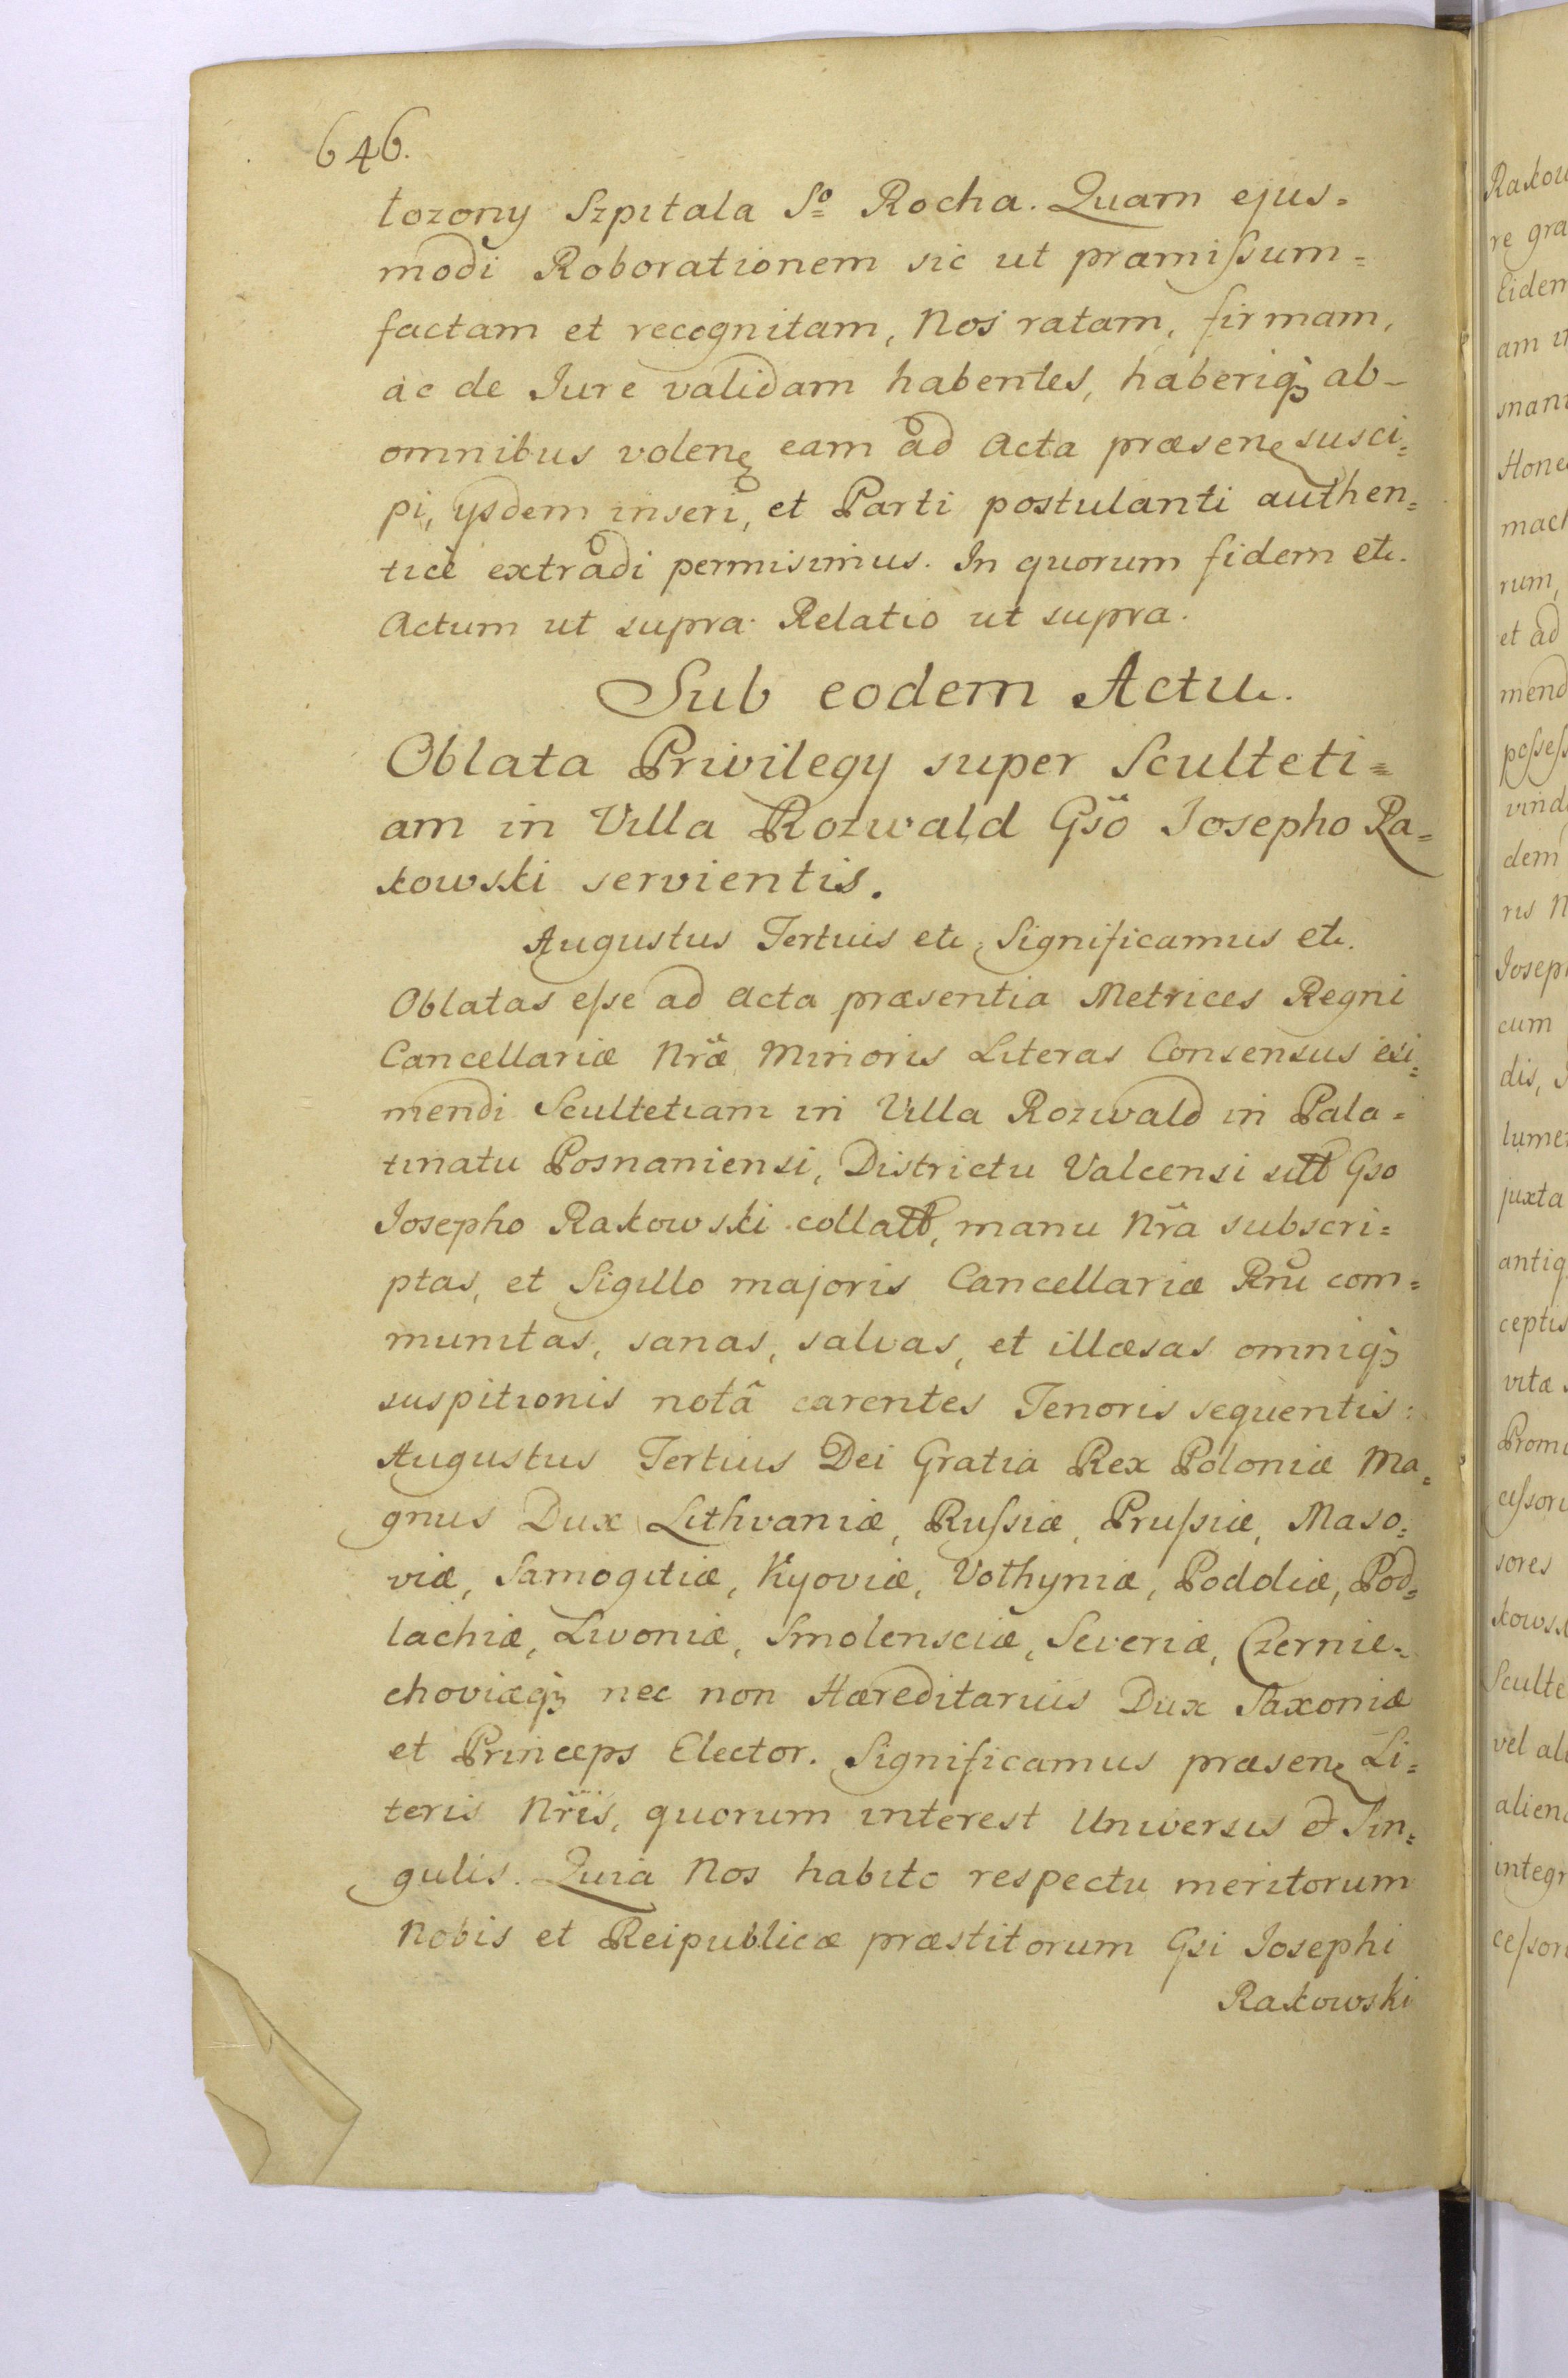 646.
łozony Szpitala So Rocha. Quam ejus=
modi Roborationem sic ut præmissum=
factam et recognitam, Nos ratam, firmam,
ac de Jure validam habentes, haberiq₃ ab-
omnibus volen. eam ad Acta præsen. susci=
pi, ysdem inseri, et Parti postulanti authen=
ticè extradi permisimus. In quorum fidem etc.
Actum ut supra. Relatio ut supra.
Sub eodem Actu.
Oblata Privilegy super Sculteti=
am in Villa Rozwald Gso Josepho Ra=
kowski servientis.
Augustus Tertius etc. Significamus etc.
Oblatas esse ad Acta præsentia Metrices Regni
Cancellariæ Nræ Minoris Literas Consensus exi=
mendi Scultetiam in Villa Rozwald in Pala=
tinatu Posnaniensi, Districtu Valcensi sitt Gso
Josepho Rakowski collatt, manu Nra subscri=
ptas, et Sigillo majoris Cancellariæ Rni com=
munitas, sanas, salvas, et illæsas omniq₃
suspitionis notâ carentes Tenoris sequentis:
Augustus Tertius Dei Gratia Rex Poloniæ Ma=
gnus Dux Lithvaniæ, Russiæ, Prussiæ, Maso=
viæ, Samogitiæ, Kyoviæ, Vołhyniæ, Podoliæ, Pod=
lachiæ, Livoniæ, Smolensciæ, Severiæ, Czernie=
choviæq₃ nec non Hæreditarius Dux Saxoniæ
et Princeps Elector. Significamus præsen. Li=
teris Nris, quorum interest Universis et Sin=
gulis. Quia Nos habito respectu meritorum
Nobis et Reipublicæ præstitorum Gsi Josephi
Rakowski
re gra
Eidem
mach
rum,
et ad
mend
possess
vind
dem
Joseph
cum
dis,
juxta
antiq
ceptis
vitæ
sores
Sculte
vel ali
integr